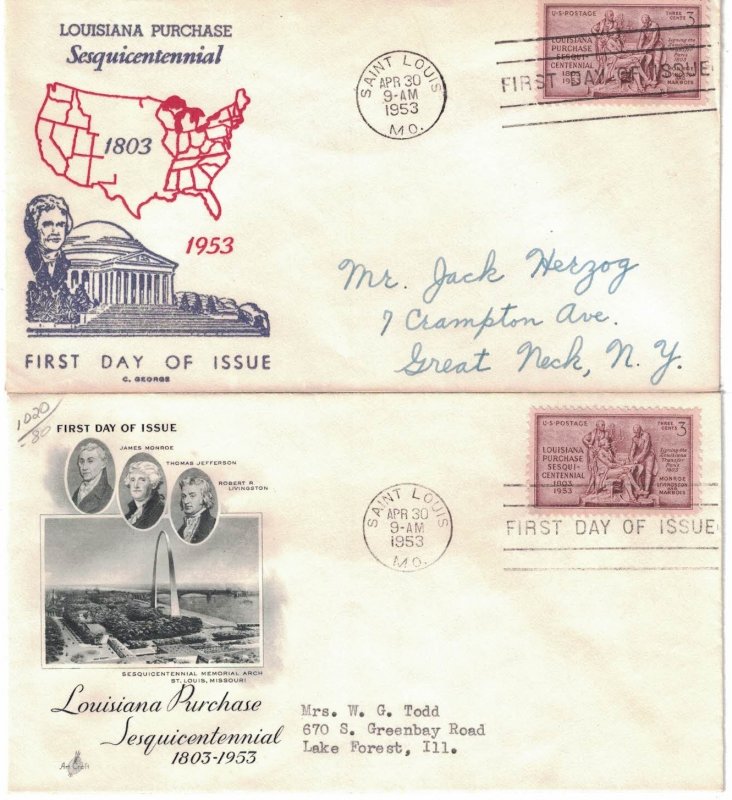 LOUISIANA PURCHASE
Sesquicentennial
1803
1953
FIRST DAY OF ISSUE
C. GEORGE
SAINT LOUIS
APR 30
9-AM
1953
MO.
U.S. POSTAGE THREE CENTS 3
LOUISIANA
PURCHASE
SESQUI-
CENTENNIAL
1803
1953
LIVINGSTON
MARBOIS
FIRST DAY OF ISSUE
Mr. Jack Herzog
7 Crampton Ave.
Great Neck, N.Y.
1020
-80
FIRST DAY OF ISSUE
JAMES MONROE
THOMAS JEFFERSON
ROBERT R.
LIVINGSTON
SESQUICENTENNIAL MEMORIAL ARCH
ST. LOUIS, MISSOURI
Louisiana Purchase
Sesquicentennial
1803-1953
Art Craft
SAINT LOUIS
APR 30
9-AM
1953
MO.
U.S. POSTAGE THREE CENTS 3
LOUISIANA
PURCHASE
SESQUI-
CENTENNIAL
1803
1953
Signing the
Louisiana
Transfer
Paris
1803
MONROE
LIVINGSTON
MARBOIS
FIRST DAY OF ISSUE
Mrs. W. G. Todd
670 S. Greenbay Road
Lake Forest, Ill.